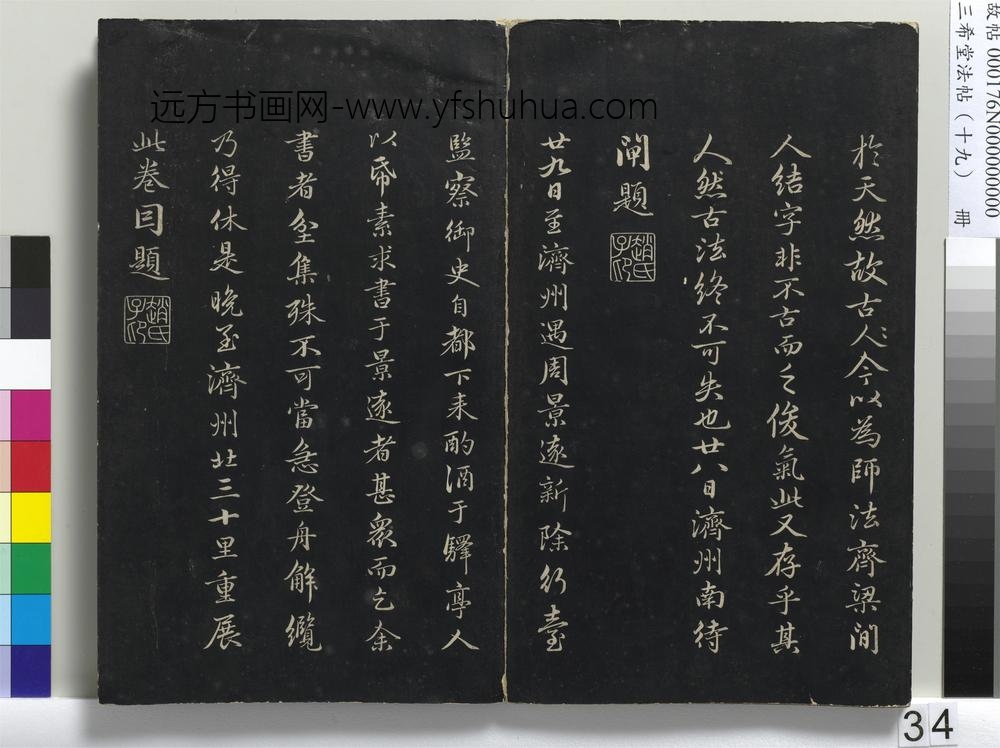 於天然故古人令以為師法齊梁間
人結字非不古而乏俊氣此又存乎其
人然古法終不可失也廿八日濟州南待
閘題
趙氏子印
廿九日至濟州遇周景遠新除行臺
監察御史自都下来酌酒于驛亭人
以帋素求書于景遠者甚眾而乞余
書者坌集殊不可當急登舟解纜
乃得休是晚至濟州北三十里重展
此卷因題
趙氏子印
远方书画网-www.yfshuhua.com
故帖 000176N000000000
三希堂法帖（十九） 冊
34